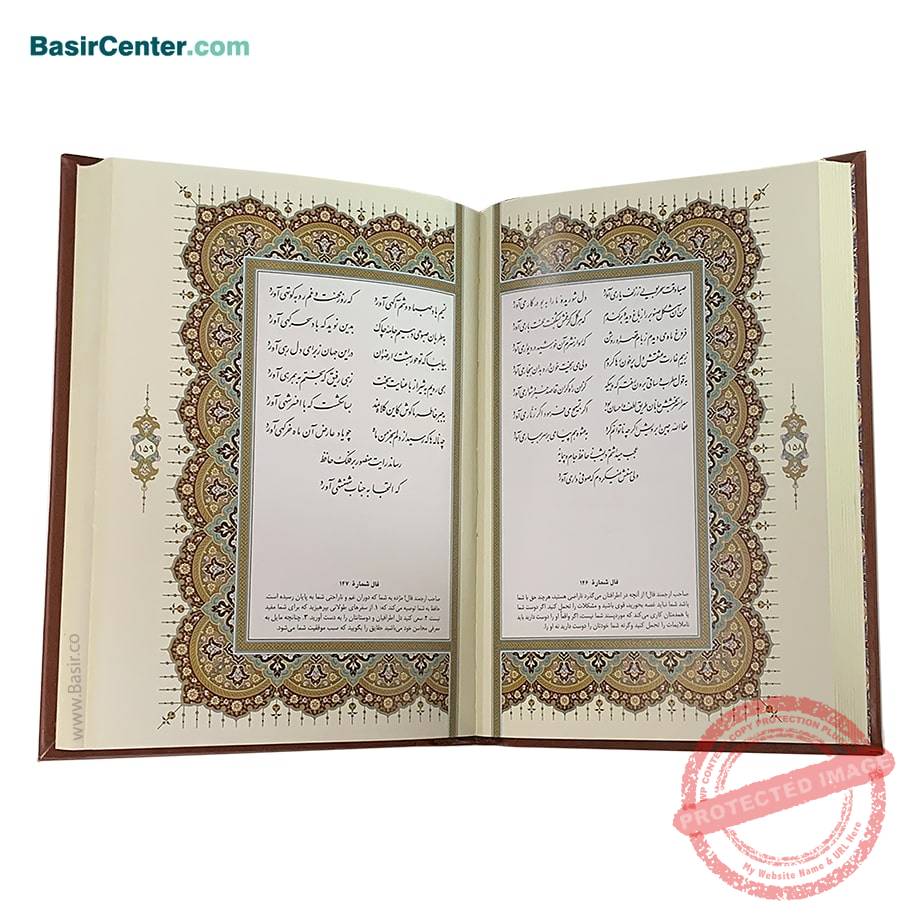 BasirCenter.com
صبا وقت سحر بویی ز زلف یار می‌آورد دل شوریده ما را به بو در کار می‌آورد
من آن شکل صنوبر را ز باغ دیده برکندم که هر گل کز غمش بشکفت محنت بار می‌آورد
فروغ ماه می‌دیدم ز بام قصر او روشن که رو از شرم آن خورشید در دیوار می‌آورد
ز بیم غارت عشقش دل پرخون رها کردم ولی می‌ریخت خون و ره بدان هنجار می‌آورد
به قول مطرب و ساقی برون رفتم گه و بیگه کز آن راه گران قاصد خبر دشوار می‌آورد
سراسر بخشش جانان طریق لطف و احسان بود اگر تسبیح می‌فرمود اگر زنار می‌آورد
عفاالله چین ابرویش اگر چه ناتوانم کرد به عشوه هم پیامی بر سر بیمار می‌آورد
عجب می‌داشتم دیشب ز حافظ جام و پیمانه
ولی منعش نمی‌کردم که صوفی‌وار می‌آورد
۱۵۸
فال شمارهٔ ۱۴۶
صاحب ارجمند فال! از آنچه در اطرافتان می‌گذرد ناراضی هستید، هرچند حق با شما
باشد شما نباید غصه بخورید، قوی باشید و مشکلات را تحمل کنید. اگر دوست شما
همچنان کاری می‌کند که موردپسند شما نیست، اگر واقعاً او را دوست دارید باید
ناملایمات را تحمل کنید وگرنه شما خودتان را دوست دارید نه او را.
نسیم باد صبا دوشم آگهی آورد که روز محنت و غم رو به کوتهی آورد
به مطربان صبوحی دهیم جامه چاک بدین نوید که باد سحرگهی آورد
بیا بیا که تو حور بهشت را رضوان در این جهان ز برای دل رهی آورد
همی رویم به شیراز با عنایت بخت زهی رفیق که بختم به همرهی آورد
به جبر خاطر ما کوش کاین کلاه نمد بسا شکست که با افسر شهی آورد
چه ناله‌ها که رسید از دلم به خرمن ماه چو یاد عارض آن ماه خرگهی آورد
رساند رایت منصور بر فلک حافظ
که التجا به جناب شهنشهی آورد
۱۵۹
فال شمارهٔ ۱۴۷
صاحب ارجمند فال! مژده به شما که دوران غم و ناراحتی شما به پایان رسیده است.
حافظ به شما توصیه می‌کند که: ۱. از سفرهای طولانی بپرهیزید که برای شما مفید
نیست ۲. سعی کنید دل اطرافیان و دوستانتان را به دست آورید. ۳. چنانچه مایل به
معرفی محاسن خود می‌باشید، حقایق را بگویید که سبب موفقیت شما می‌شود.
www.Basir.co
WP CONTENT COPY PROTECTION PLUGIN
PROTECTED IMAGE
My Website Name & URL Here